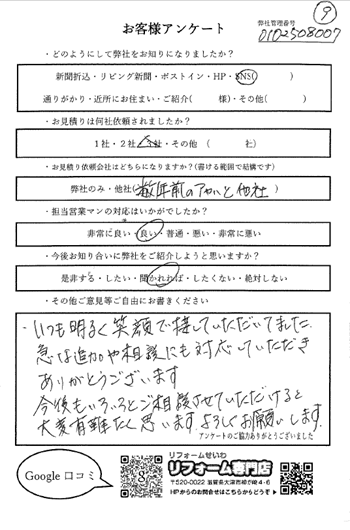 ⑨
お客様アンケート
弊社管理番号
0102508007
・どのようにして弊社をお知りになりましたか?
新聞折込・リビング新聞・ポストイン・HP・SNS( )
通りがかり・近所にお住まい・ご紹介( 様)・その他( )
・お見積りは何社依頼されましたか?
1社・2社・3社・その他 ( 社)
・お見積り依頼会社はどちらになりますか?(書ける範囲で結構です)
弊社のみ・他社( 数年前の と他社 )
・担当営業マンの対応はいかがでしたか?
非常に良い・良い・普通・悪い・非常に悪い
・今後お知り合いに弊社をご紹介しようと思いますか?
是非する・したい・聞かれれば・したくない・絶対しない
・その他ご意見等ご自由にお書きください
・いつも明るく笑顔で接していただいてました。
急な追加や相談にも対応いただき
ありがとうございます
今後もいろいろとご相談させていただけると
大変有難たく思います。よろしくお願いします。
アンケートのご協力ありがとうございました
Google 口コミ
リフォームせいわ
リフォーム専門店
〒520-0022 滋賀県大津市柳が崎4-6
HPからのお問合せはこちらからどうぞ▶